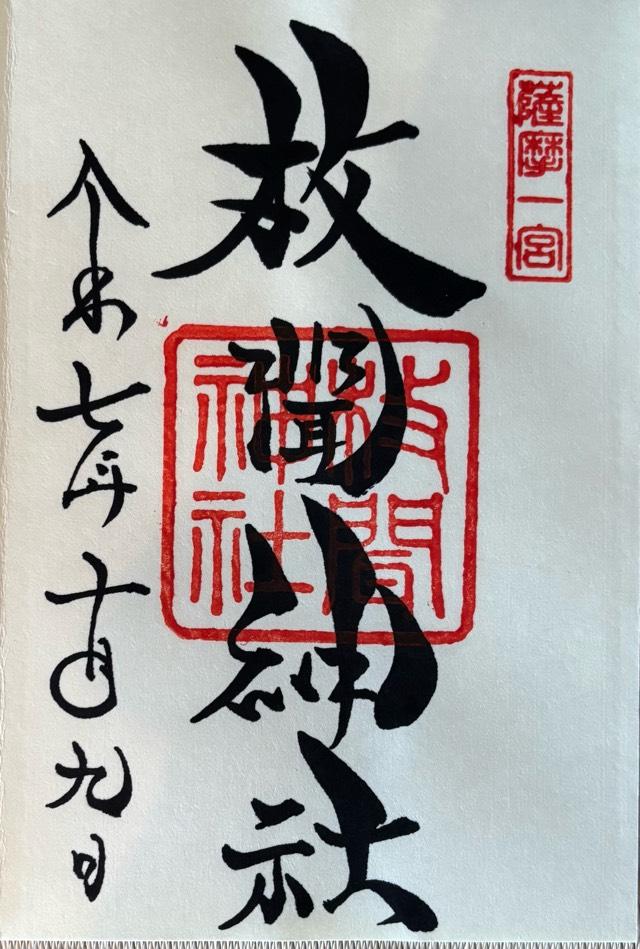 薩摩一宮
枚聞神社
枚聞神社
令和七年十月九日